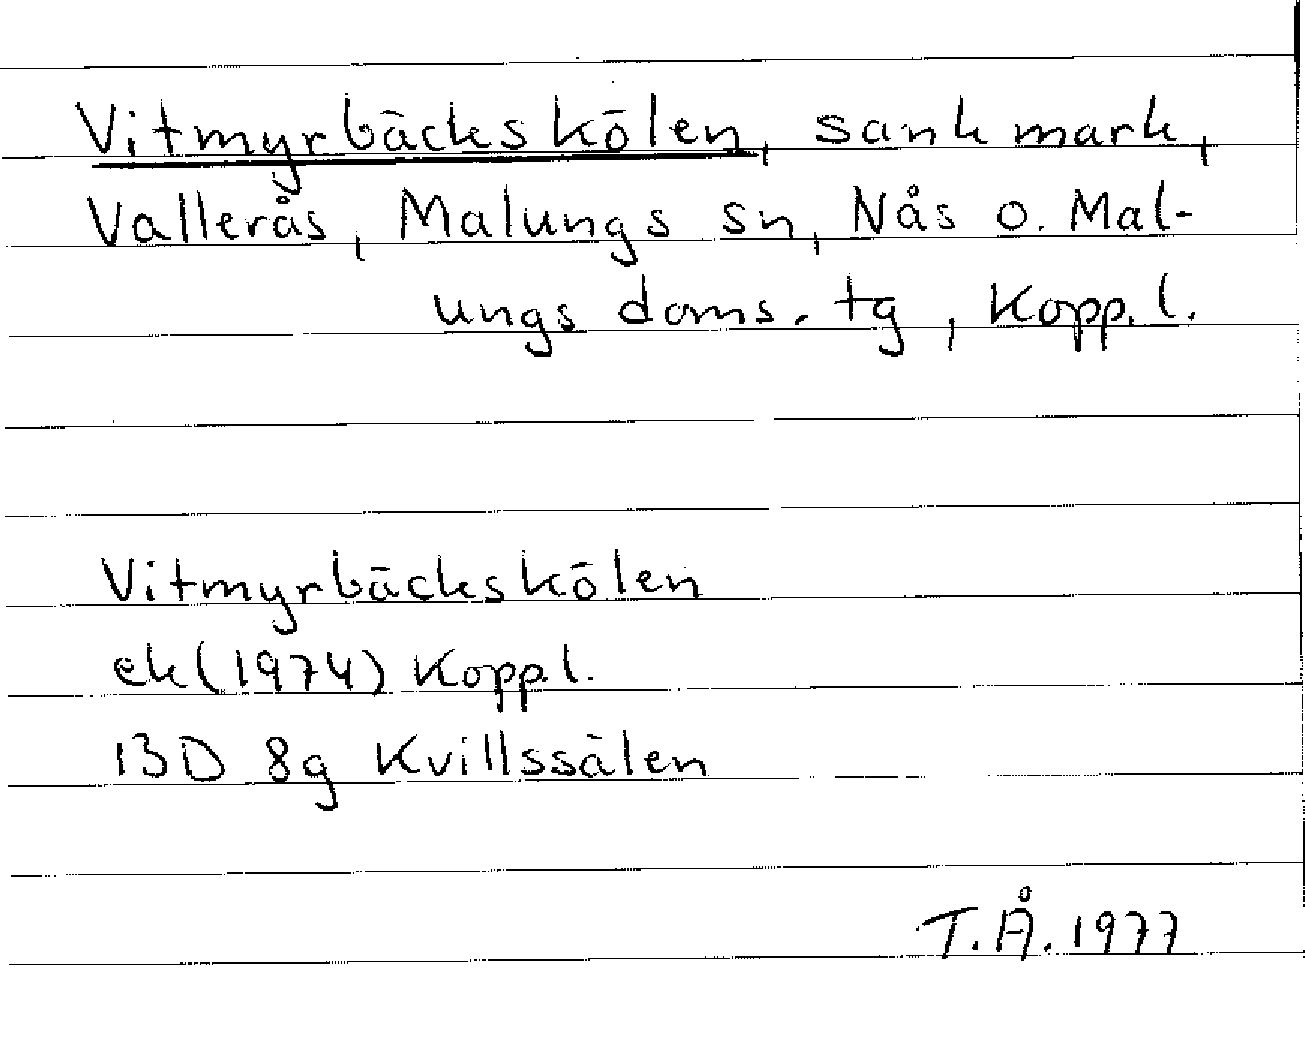 Vitmyrbäckskölen, sank mark,
Vallerås, Malungs sn, Nås o. Mal-
ungs doms. tg, Kopp. l.
Vitmyrbäckskölen
ek (1974) Kopp l.
13D 8g Kvillssälen
T.Å. 1977